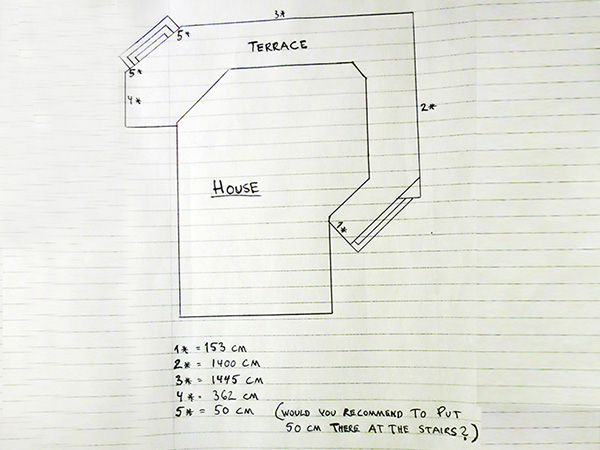 3*
5*
TERRACE
5*
4*
2*
HOUSE
1*
1* = 153 CM
2* = 1400 CM
3* = 1445 CM
4* = 362 CM
5* = 50 CM (WOULD YOU RECOMMEND TO PUT
50 CM THERE AT THE STAIRS?)